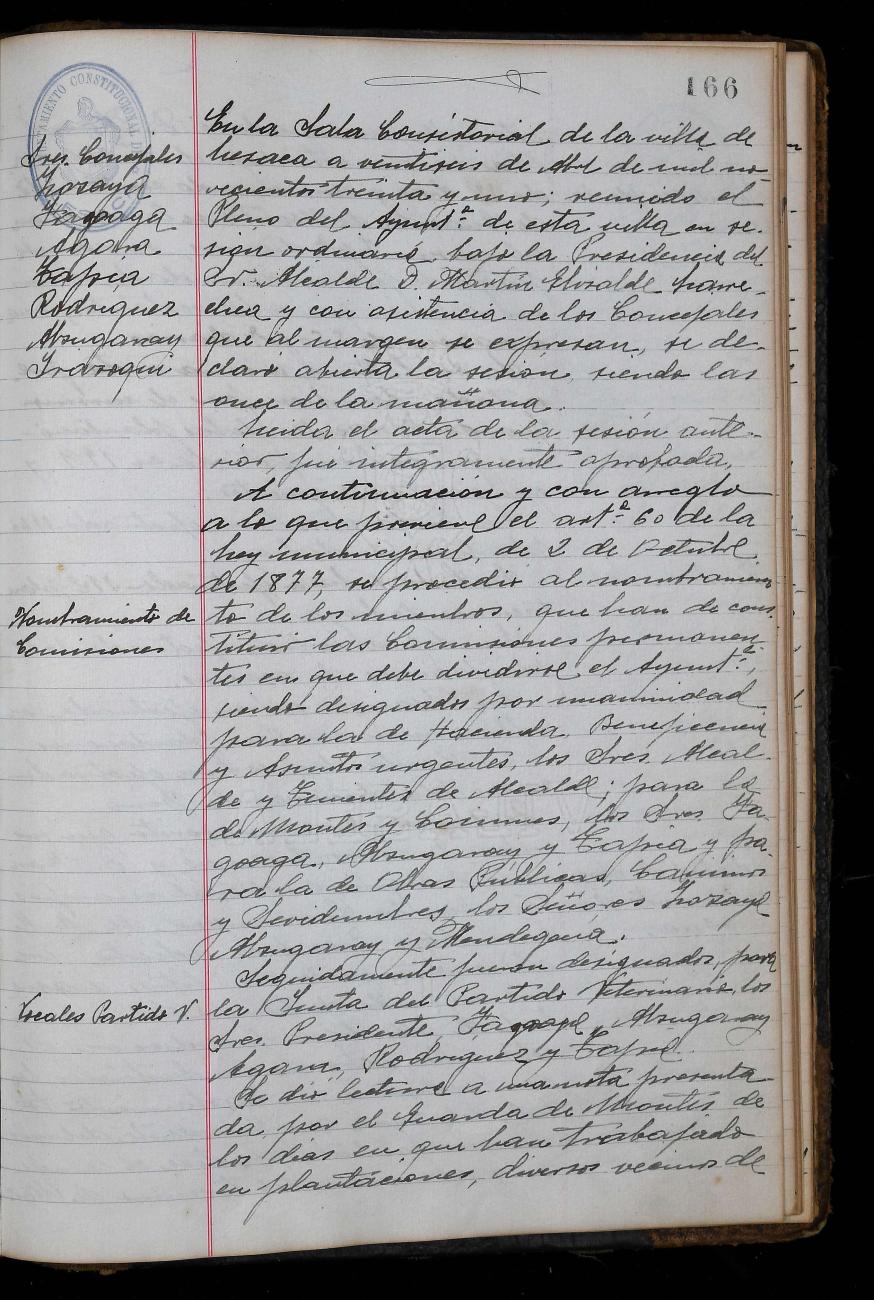 166
AYUNTAMIENTO CONSTITUCIONAL DE
Sres. Concejales
Lozaya
Fagoaga
Agara
Tapia
Rodriguez
Absugaray
Irazoqui
En la Sala Consistorial de la villa de
Lesaca a ventiseis de Abril de mil no-
vecientos treinta y uno; reunido el
Pleno del Ayuntº. de esta villa en se-
sión ordinaria bajo la Presidencia del
Sr. Alcalde D. Martín Elizalde Larre-
chea y con asistencia de los Concejales
que al margen se expresan, se de-
claró abierta la sesión, siendo las
once de la mañana.
Leida el acta de la sesión ante-
rior, fue integramente aprobada.
A continuación y con arreglo
a lo que previene el artº. 60 de la
Ley municipal, de 2 de Octubre
de 1877, se procedio al nombramien-
Nombramiento de
Comisiones
to de los miembros, que han de cons-
tituir las Comisiones permanen-
tes en que debe dividirse el Ayuntº.,
siendo designados por unanimidad
para la de Hacienda, Beneficencia
y Asuntos urgentes, los Sres. Alcal-
de y Tenientes de Alcalde; para la
de Montes y Comunes, los Sres. Fa-
goaga, Absugaray y Tapia y pa-
ra la de Obras Públicas, Caminos
y Sevidumbres, los Señores Lozaya
Absugaray y Mendegaria.
Seguidamente fueron designados, para
Vocales Partido V.
la Junta del Partido Veterinario, los
Sres. Presidente, Fagoaga, Absugaray
Agara, Rodriguez y Tapia.
Se dió lectura a una nota presenta-
da por el Guarda de Montes, de
los dias en que han trabajado
en plantaciones, diversos vecinos de